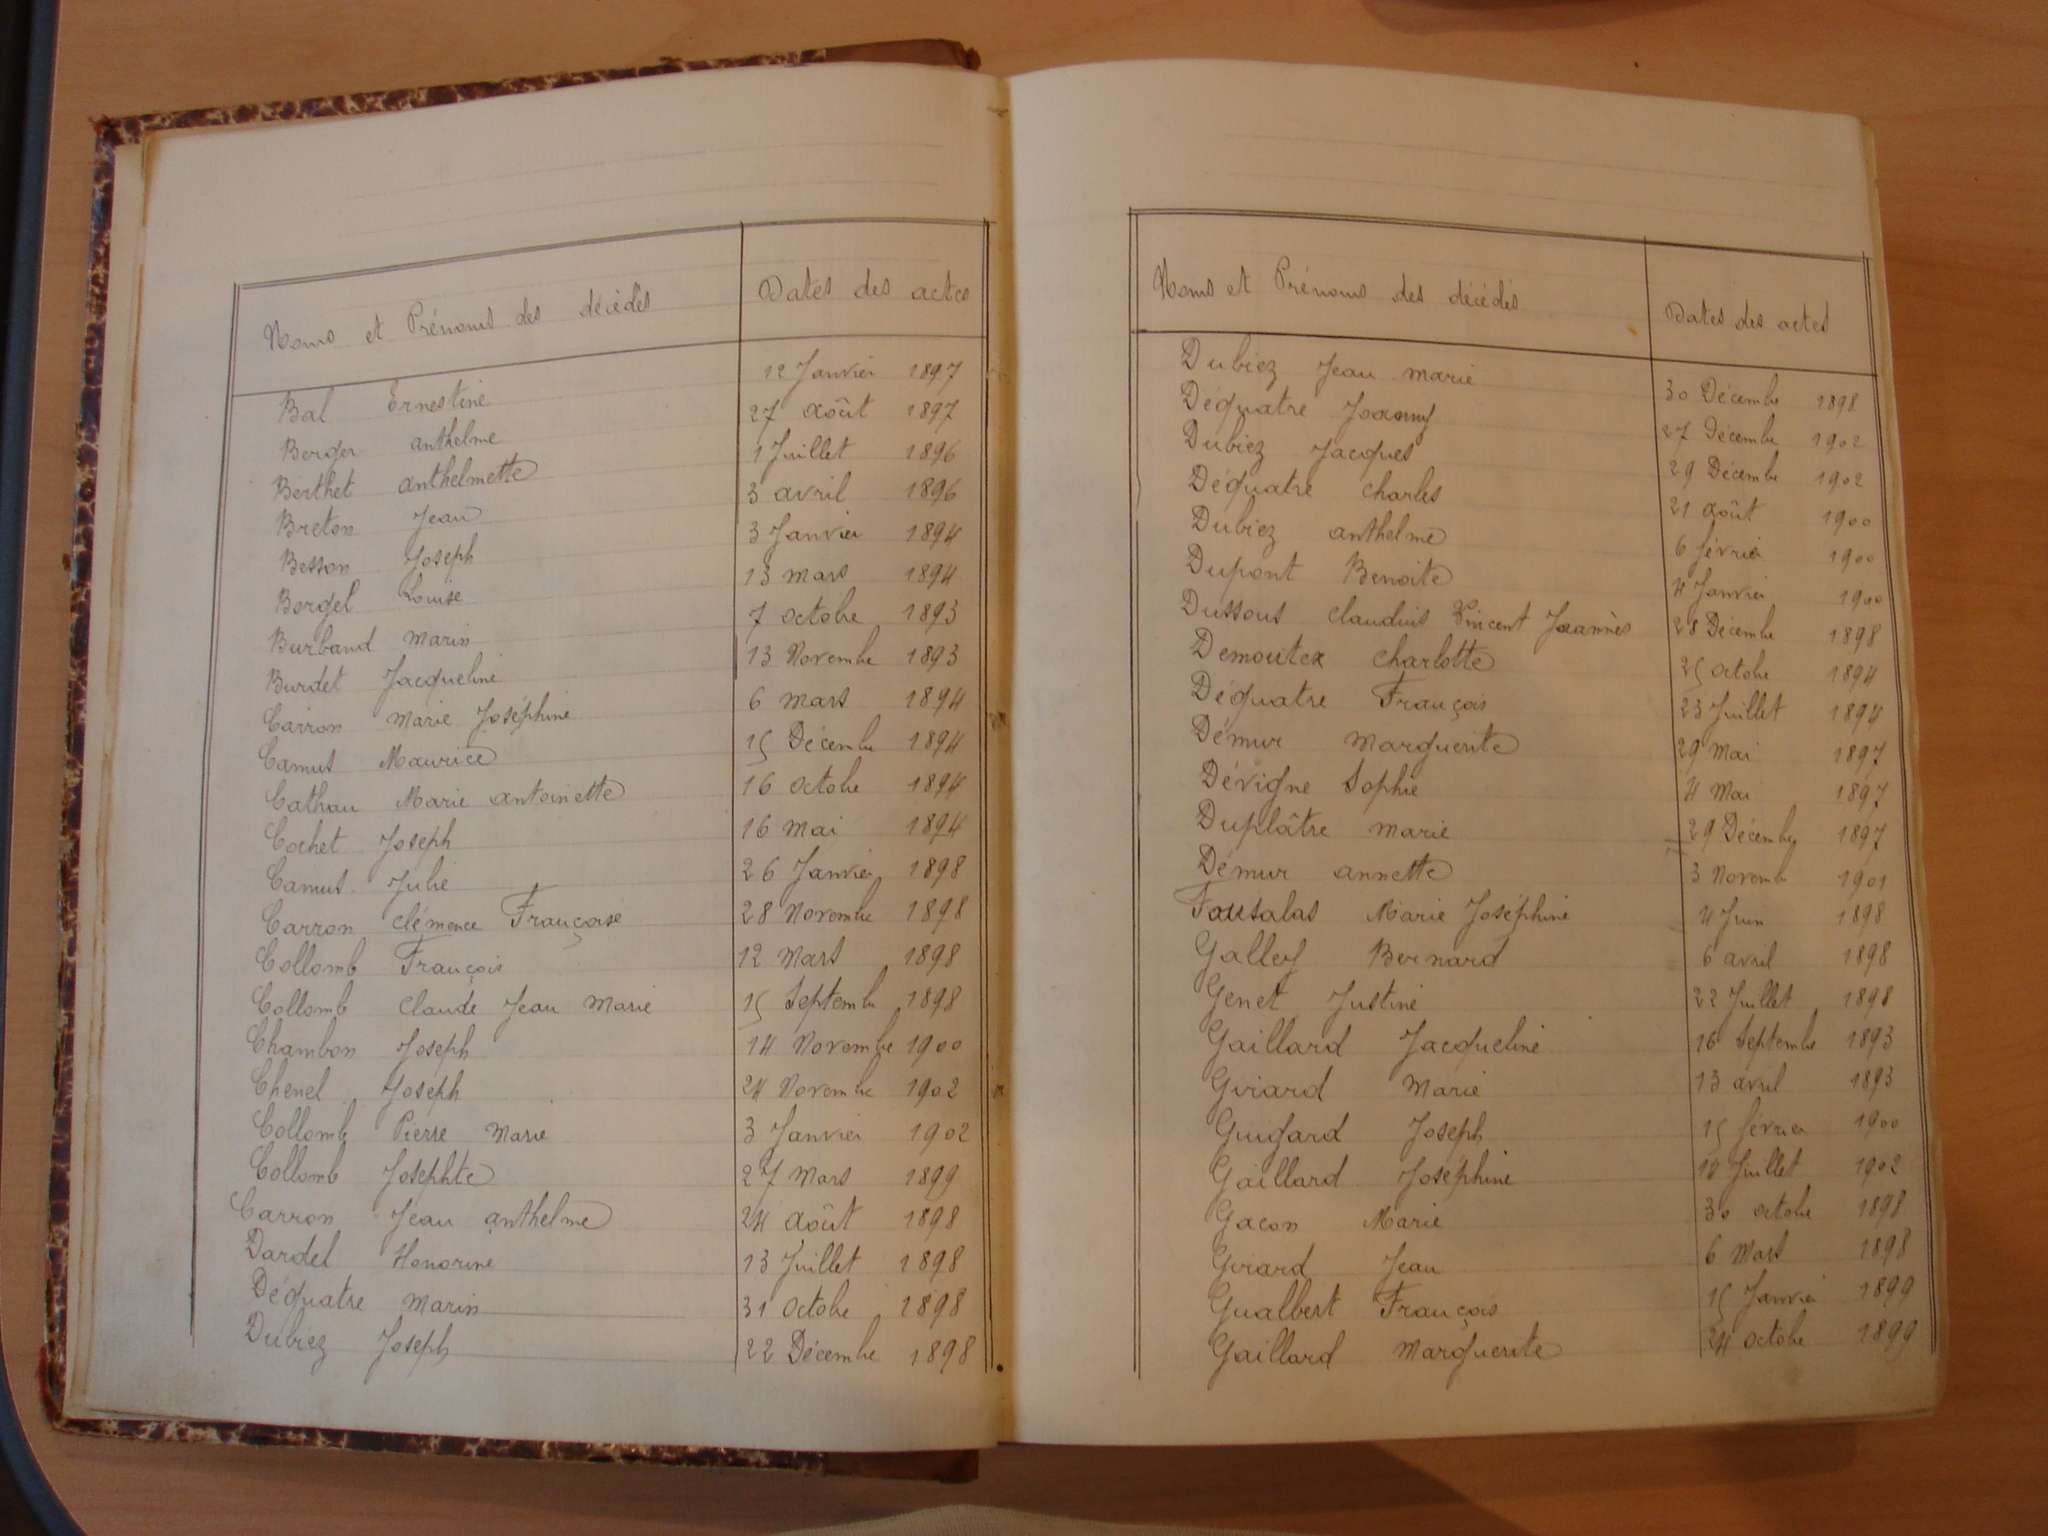 Noms et Prénoms des décédés Dates des actes
Bal Ernestine 12 Janvier 1897
Berger anthelme 27 août 1897
Berthet anthelmette 1 Juillet 1896
Breton Jean 3 avril 1896
Besson Joseph 3 Janvier 1894
Borgel Louise 13 mars 1894
Burband Marin 7 octobre 1893
Burdet Jacqueline 13 Novembre 1893
Carron Marie Joséphine 6 mars 1894
Camus Maurice 15 Décembre 1894
Cathau Marie antoinette 16 octobre 1894
Cochet Joseph 16 mai 1894
Camus Julie 26 Janvier 1898
Carron Clémence Françoise 28 Novembre 1898
Collomb François 12 Mars 1898
Collomb Claude Jean Marie 15 Septembre 1898
Chambon Joseph 14 Novembre 1900
Chenel Joseph 24 Novembre 1902
Collomb Pierre Marie 3 Janvier 1902
Collomb Josephte 27 Mars 1899
Carron Jean anthelme 24 août 1898
Dardel Honorine 13 Juillet 1898
Déquatre Marin 31 octobre 1898
Dubiez Joseph 22 Décembre 1898
Noms et Prénoms des décédés Dates des actes
Dubiez Jean marie 30 Décembre 1898
Déquatre Joanny 27 Décembre 1902
Dubiez Jacques 29 Décembre 1902
Déquatre Charles 21 août 1900
Dubiez anthelme 6 février 1900
Dupont Benoite 4 Janvier 1900
Dussous Claudius Vincent Joannès 28 Décembre 1898
Demoutex Charlotte 25 octobre 1894
Déquatre François 23 Juillet 1894
Démur Marguerite 29 Mai 1897
Dévigne Sophie 4 Mai 1897
Duplâtre Marie 29 Décembre 1897
Démur annette 3 Novembre 1901
Fousalas Marie Joséphine 4 Juin 1898
Galley Bernard 6 avril 1898
Genet Justine 22 Juillet 1898
Gaillard Jacqueline 16 Septembre 1893
Girard Marie 13 avril 1893
Guigard Joseph 15 février 1900
Gaillard Joséphine Juillet 1902
Gacon Marie 30 octobre 1898
Girard Jean 6 Mars 1898
Gualbert François 15 Janvier 1899
Gaillard Marguerite 24 octobre 1899